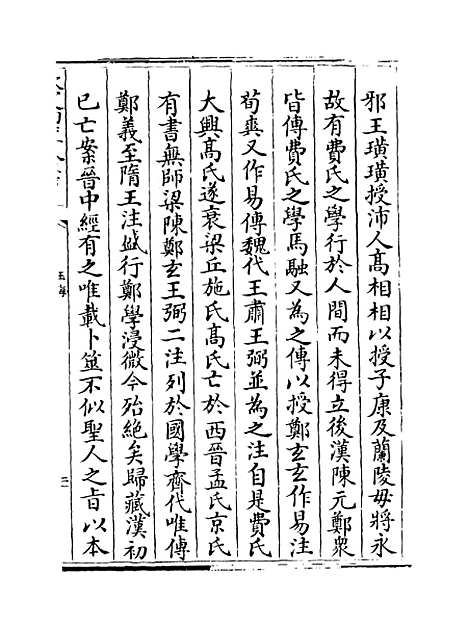 邪王璜璜授沛人高相相以授子康及蘭陵毋將永
故有費氏之學行於人間而未得立後漢陳元鄭衆
皆傳費氏之學馬融又為之傳以授鄭玄玄作易注
荀爽又作易傳魏代王肅王弼並為之注自是費氏
大興髙氏遂衰梁丘施氏髙氏亡於西晉孟氏京氏
有書無師梁陳鄭玄王弼二注列於國學齊代唯傳
鄭義至隋王注盛行鄭學浸微今殆絶矣歸藏漢初
已亡案晉中經有之唯載卜筮不似聖人之旨以本
玉海
三